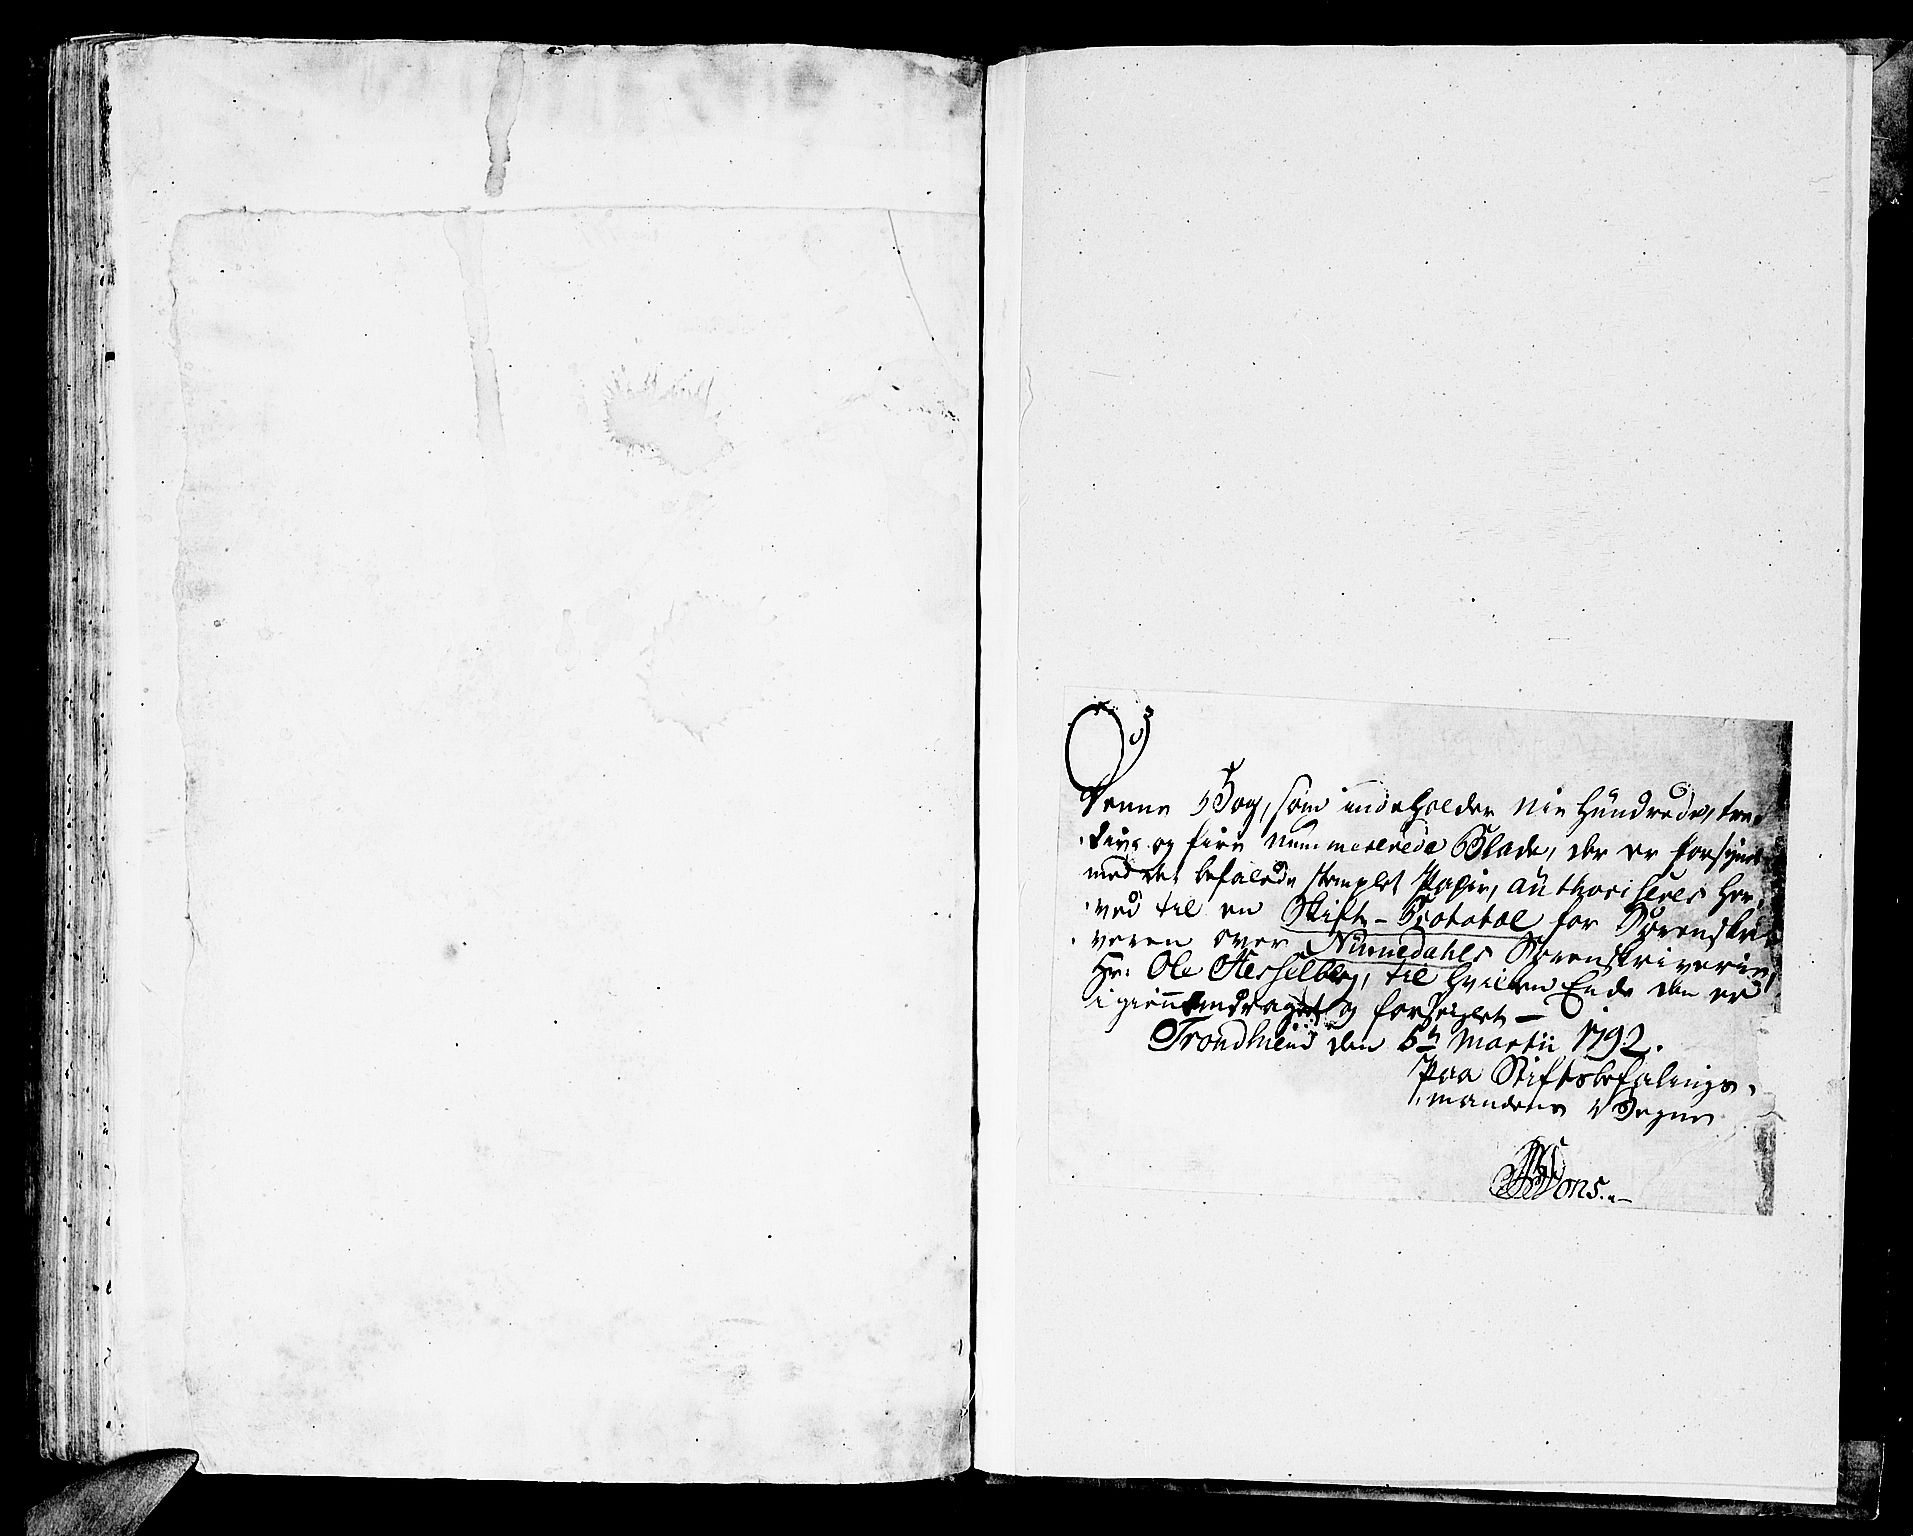 Denne Bog, som indeholder Nie Hundrede, tre-
dive og fire Nummererede Blade, der er forsynet
med det befalede stemplet Papir, authoriseres her-
ved til en Skifte-Protokol for Sorenskri-
veren over Nummedahls Sorenskriverie,
Hr: Ole Hesselberg, til hvilken Ende den er
igiennemdraget og forseiglet —
Trondhiem den 5te Martii 1792.
Paa Stiftsbefalings-
mandens Vegne